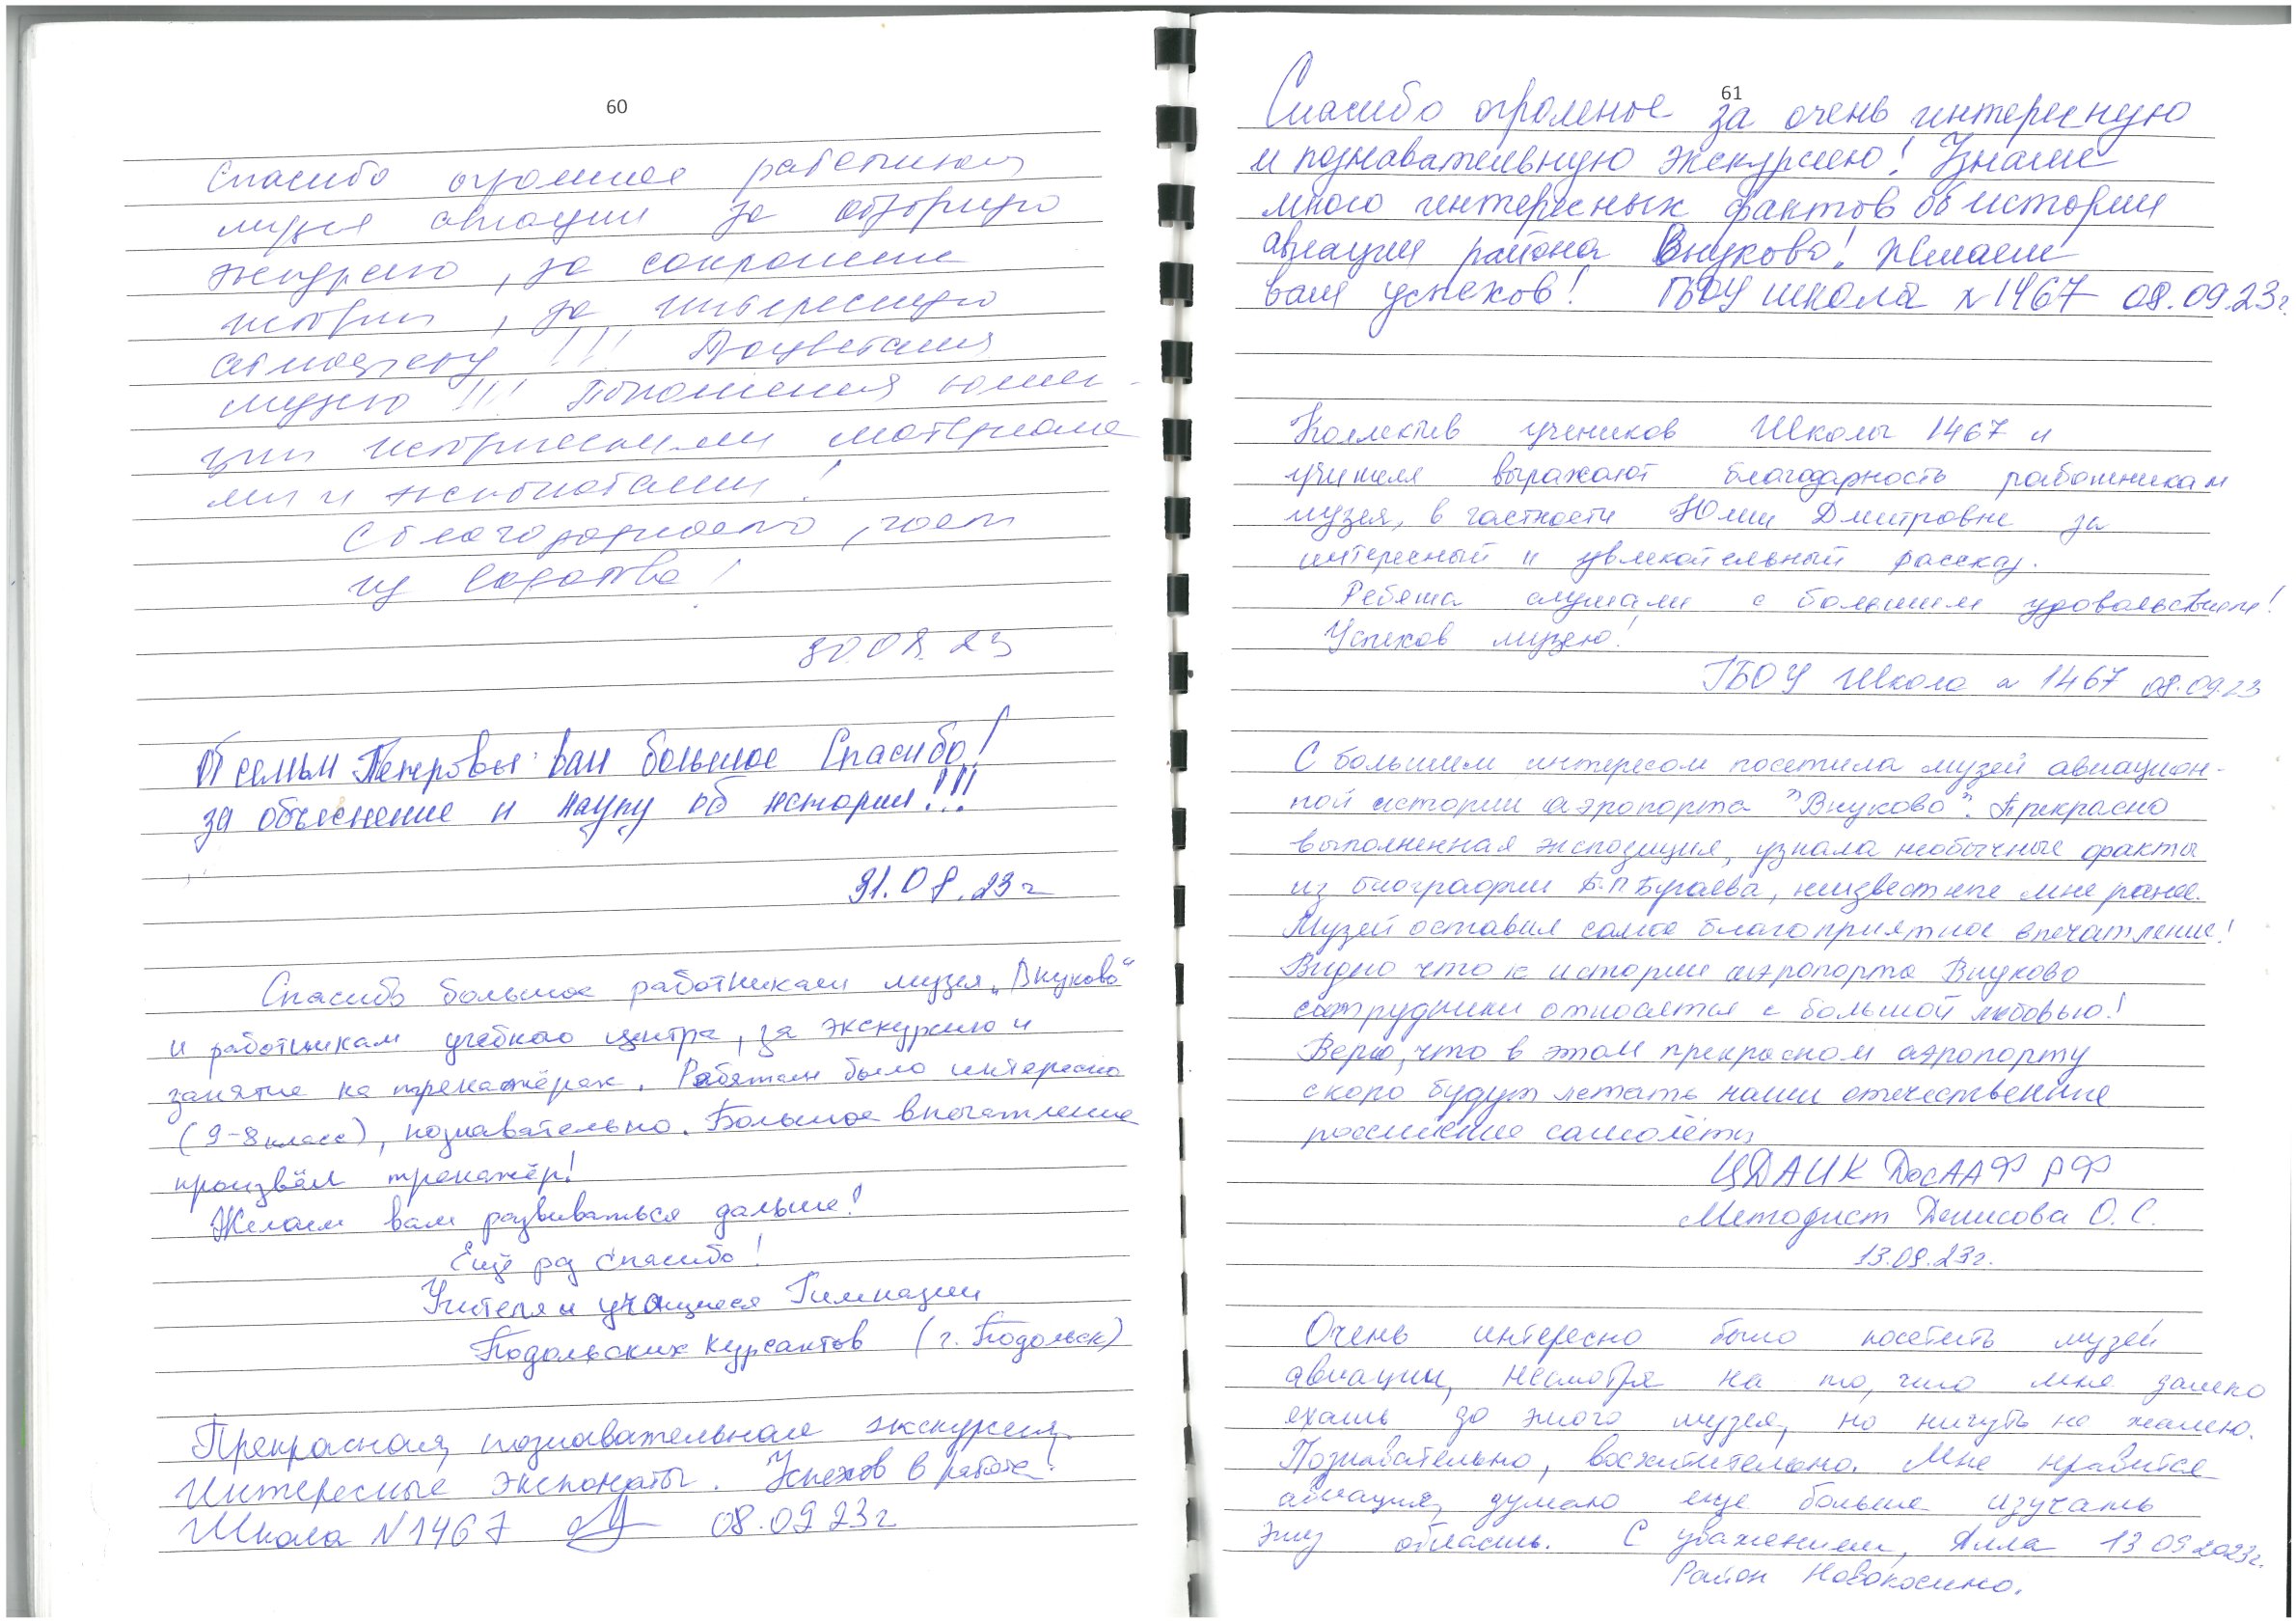 60
Спасибо огромное работникам
музея авиации за обзорную
экскурсию, за сохранение
истории, за интересную
атмосферу!!! Процветания
музею!!! Пополнения коллек-
ции историческими материала
ми и экспонатами!
С благодарностью, гости
из Саратова!
30.08.23
От семьи Петровы вам большое Спасибо!
за объяснение и науку об истории!!!
31.08.23 г
Спасибо большое работникам музея „Внуково"
и работникам учебного центра, за экскурсию и
занятие на тренажёрах. Ребятам было интересно
(9-8 класс), познавательно. Большое впечатление
произвёл тренажёр!
Желаем вам развиваться дальше!
Ещё раз спасибо!
Учителя и учащиеся Гимназии
Подольских Курсантов (г. Подольск)
Прекрасная, познавательная экскурсия.
Интересные экспонаты. Успехов в работе!
Школа N1467 08.09 23г
61
Спасибо огромное за очень интересную
и познавательную экскурсию! Узнали
много интересных фактов об истории
авиации района Внуково! Желаем
вам успехов! ГБОУ школа N1467 08.09.23г.
Коллектив учеников Школы 1467 и
учителя выражают благодарность работникам
музея, в частности Юлии Дмитровне за
интересный и увлекательный рассказ.
Ребята слушали с большим удовольствием!
Успехов музею!
ГБОУ Школа N 1467 08.09.23
С большим интересом посетила музей авиацион-
ной истории аэропорта "Внуково". Прекрасно
выполненная экспозиция, узнала необычные факты
из биографии Б.П Бугаева, неизвестные мне ранее.
Музей оставил самое благоприятное впечатление!
Видно что к истории аэропорта Внуково
сотрудники относятся с большой любовью!
Верю, что в этом прекрасном аэропорту
скоро будут летать наши отечественные
российские самолёты
ЦДАИК ДосААФ РФ
Методист Денисова О. С.
13.09.23г.
Очень интересно было посетить музей
авиации, несмотря на то, что мне далеко
ехать до этого музея, но ничуть не жалею.
Познавательно, восхитительно. Мне нравится
авиация, думаю еще больше изучать
эту область. С уважением, Алла 13 09 2023г.
Район Новокосино.